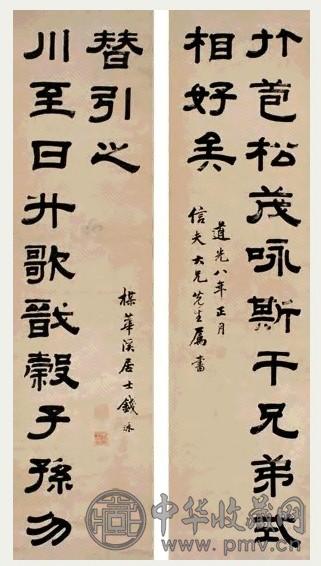 竹苞松茂咏斯干兄弟式
相好矣
道光八年正月
信夫大兄先生属書
川至日升歌戩穀子孫勿
替引之
楳華溪居士錢泳
中华收藏网
www.pmv.cn